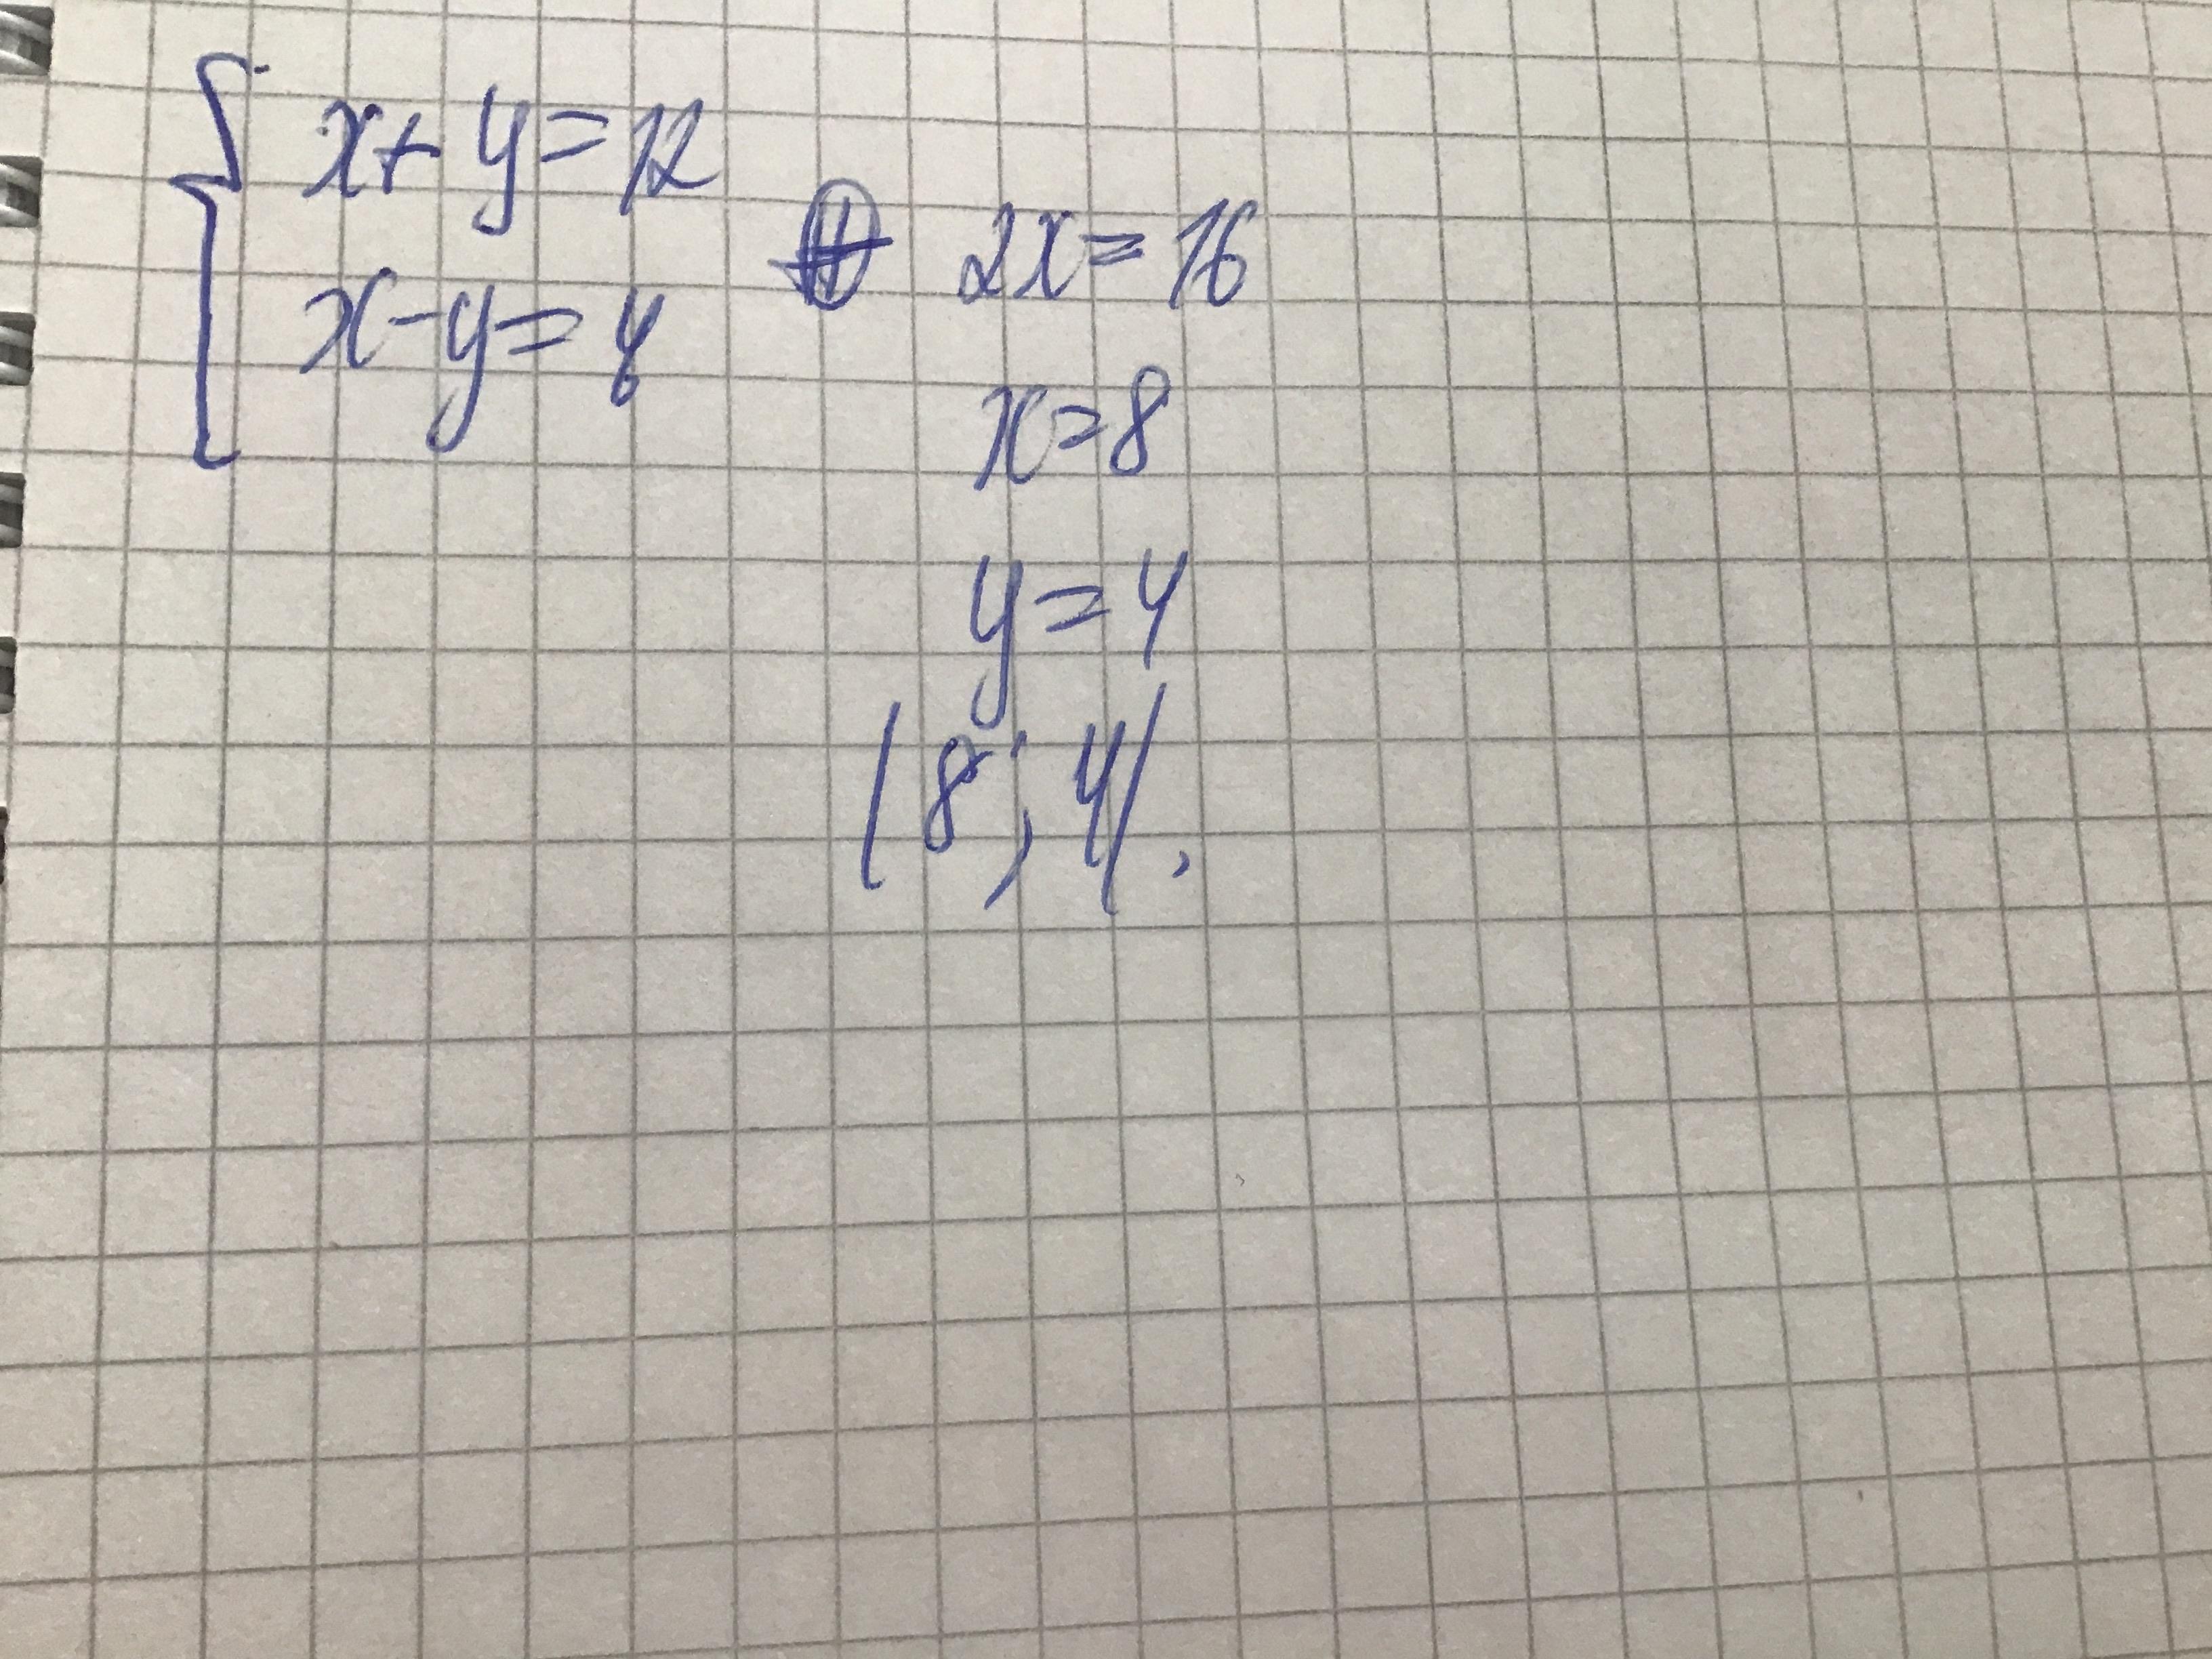 x+y=12
x-y=4
⊕ 2x=16
x=8
y=4
(8; 4).